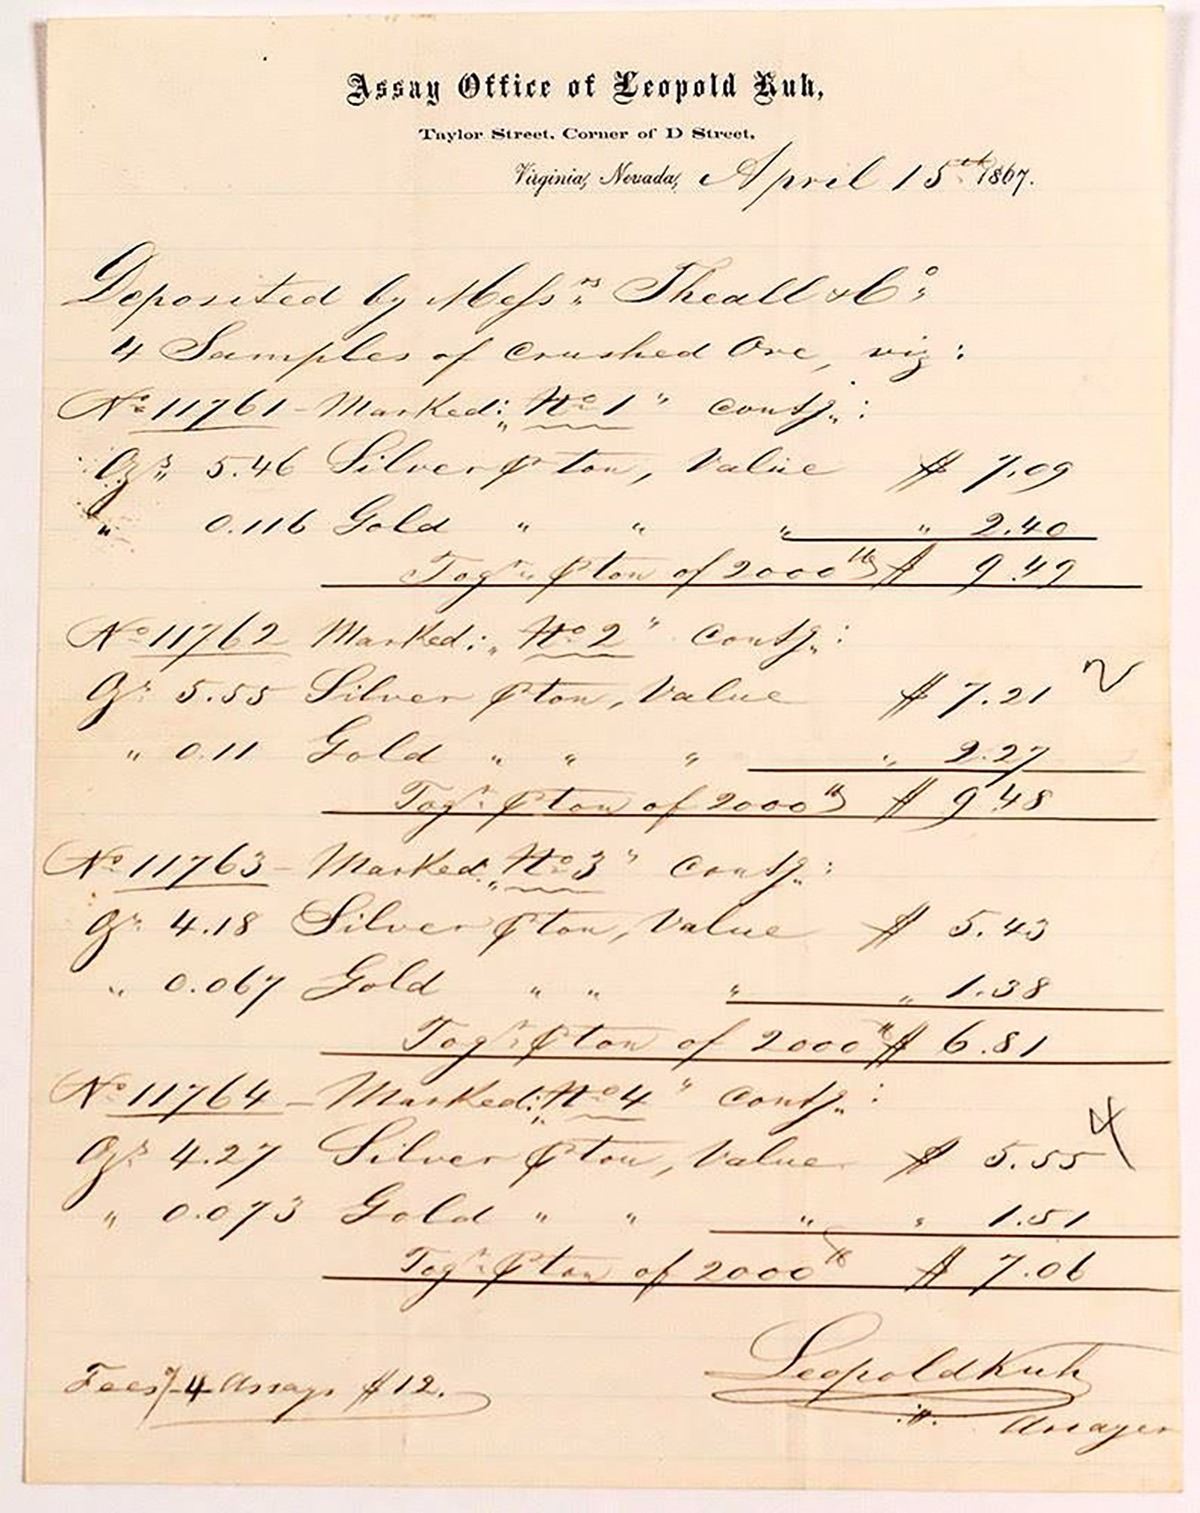 Assay Office of Leopold Kuh,
Taylor Street, Corner of D Street,
Virginia, Nevada, April 15th 1867.
Deposited by Messrs Theall & Co:
4 Samples of Crushed Ore, viz:
No 11761 - Marked: "No 1" contg:
Ozs 5.46 Silver ⅌ ton, Value $ 7.09
" 0.116 Gold " " " " 2.40
Togr ⅌ ton of 2000 lbs $ 9.49
No 11762 Marked: "No 2" contg:
Oz 5.55 Silver ⅌ ton, Value $ 7.21 2
" 0.11 Gold " " " " 2.27
Togr ⅌ ton of 2000 lbs $ 9.48
No 11763 - Marked "No 3" contg:
Oz 4.18 Silver ⅌ ton, Value $ 5.43
" 0.067 Gold " " " " 1.38
Togr ⅌ ton of 2000 lb $ 6.81
No 11764 - Marked: "No 4" contg:
Ozs 4.27 Silver ⅌ ton, Value $ 5.55 4
" 0.073 Gold " " " " 1.51
Togr ⅌ ton of 2000 lb $ 7.06
Fees f 4 Assays $12.
Leopold Kuh
Assayer